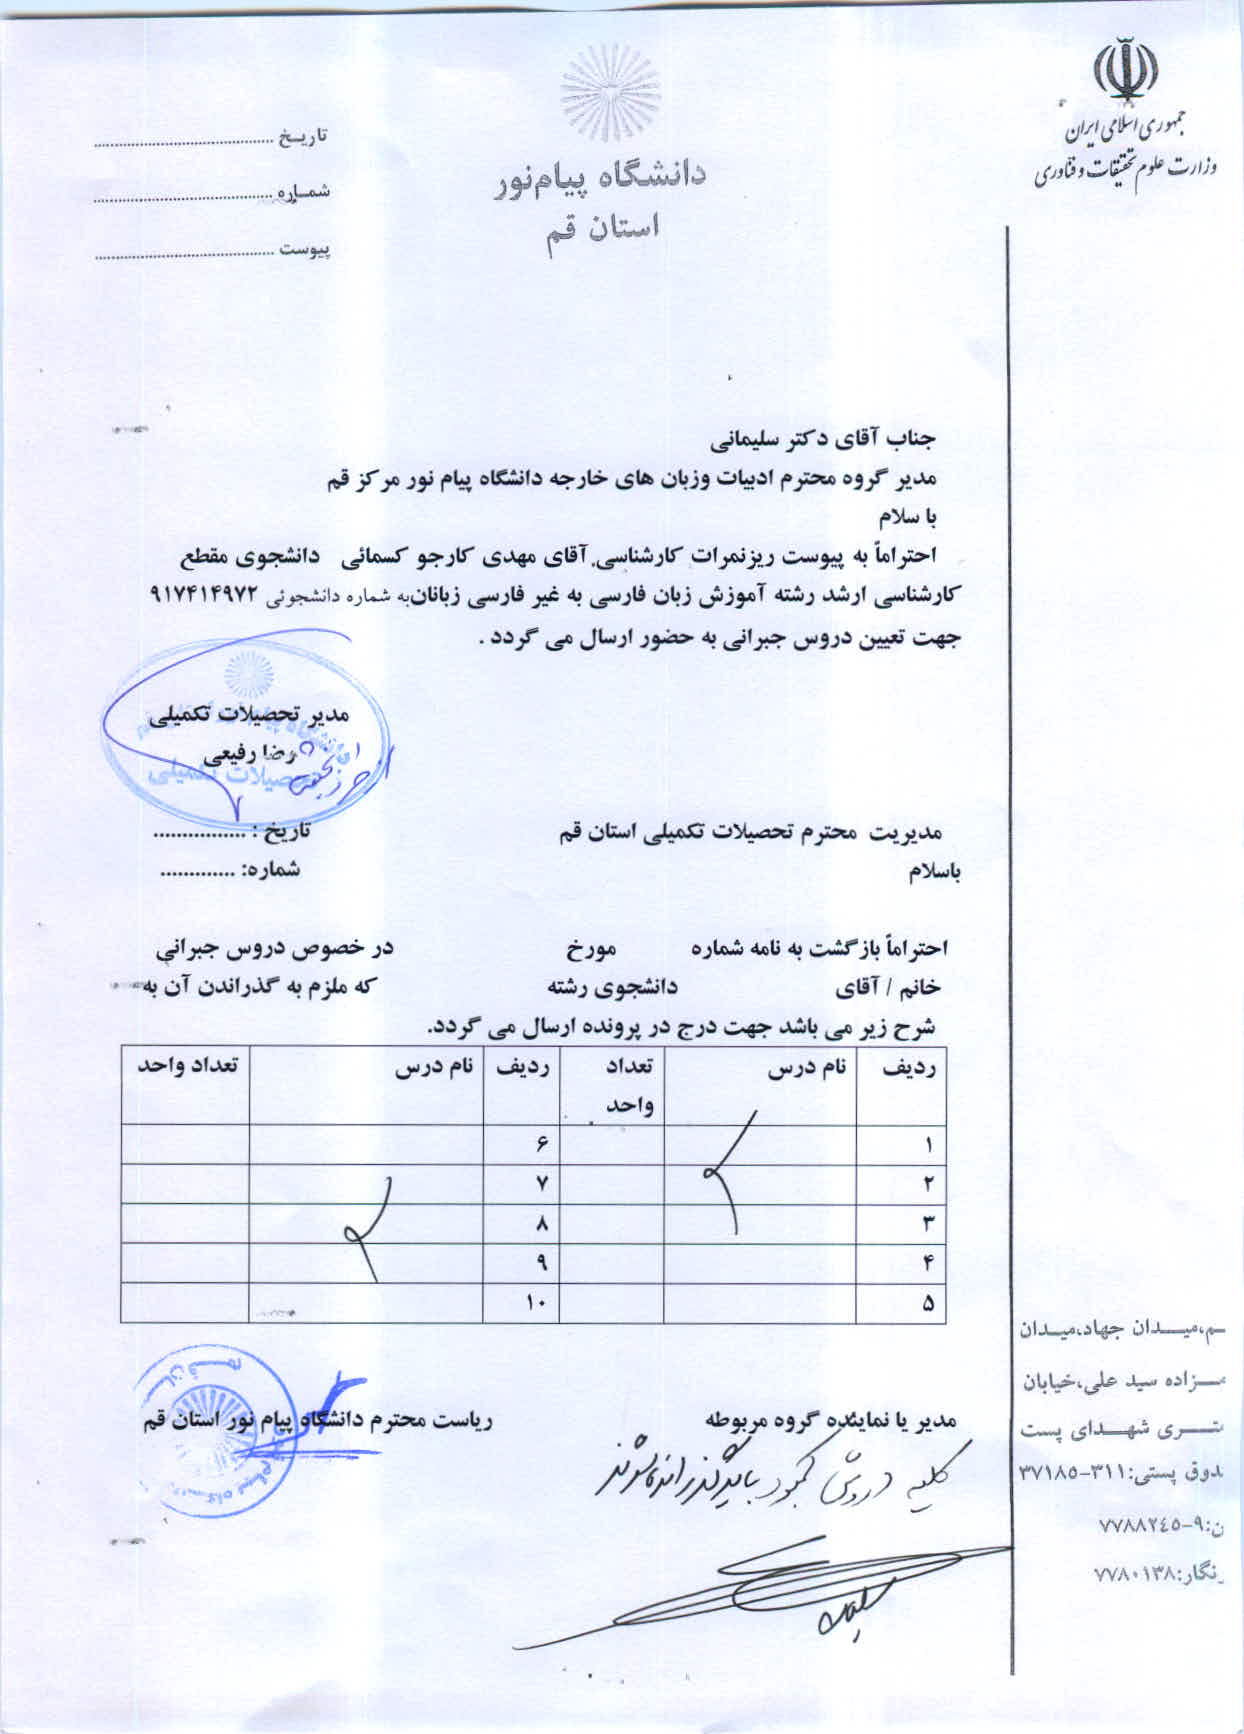 جمهوری اسلامی ایران
وزارت علوم تحقیقات و فناوری
دانشگاه پیام‌نور
استان قم
تاریـخ ........................................
شمـاره ........................................
پیوست ........................................
جناب آقای دکتر سلیمانی
مدیر گروه محترم ادبیات وزبان های خارجه دانشگاه پیام نور مرکز قم
با سلام
احتراماً به پیوست ریزنمرات کارشناسی آقای مهدی کارجو کسمائی دانشجوی مقطع
کارشناسی ارشد رشته آموزش زبان فارسی به غیر فارسی زبانان به شماره دانشجوئی ۹۱۷۴۱۴۹۷۲
جهت تعیین دروس جبرانی به حضور ارسال می گردد .
مدیر تحصیلات تکمیلی
رضا رفیعی
تحصیلات تکمیلی
مدیریت محترم تحصیلات تکمیلی استان قم تاریخ : ................
باسلام شماره: .............
احتراماً بازگشت به نامه شماره مورخ در خصوص دروس جبرانی
خانم / آقای دانشجوی رشته که ملزم به گذراندن آن به
شرح زیر می باشد جهت درج در پرونده ارسال می گردد.
ردیف نام درس تعداد واحد ردیف نام درس تعداد واحد
۱ ۶
۲ ۷
۳ ۸
۴ ۹
۵ ۱۰
مدیر یا نماینده گروه مربوطه ریاست محترم دانشگاه پیام نور استان قم
کلیه دروس کمبود باید گذرانده شوند
ـم،میـــدان جهاد،میـدان
ـزاده سید علی،خیابان
ـتری شهـدای پست
ـدوق پستی:۳۱۱-۳۷۱۸۵
ن:۹-۷۷۸۸۲٤۵
نگار:۷۷۸۰۱۳۸